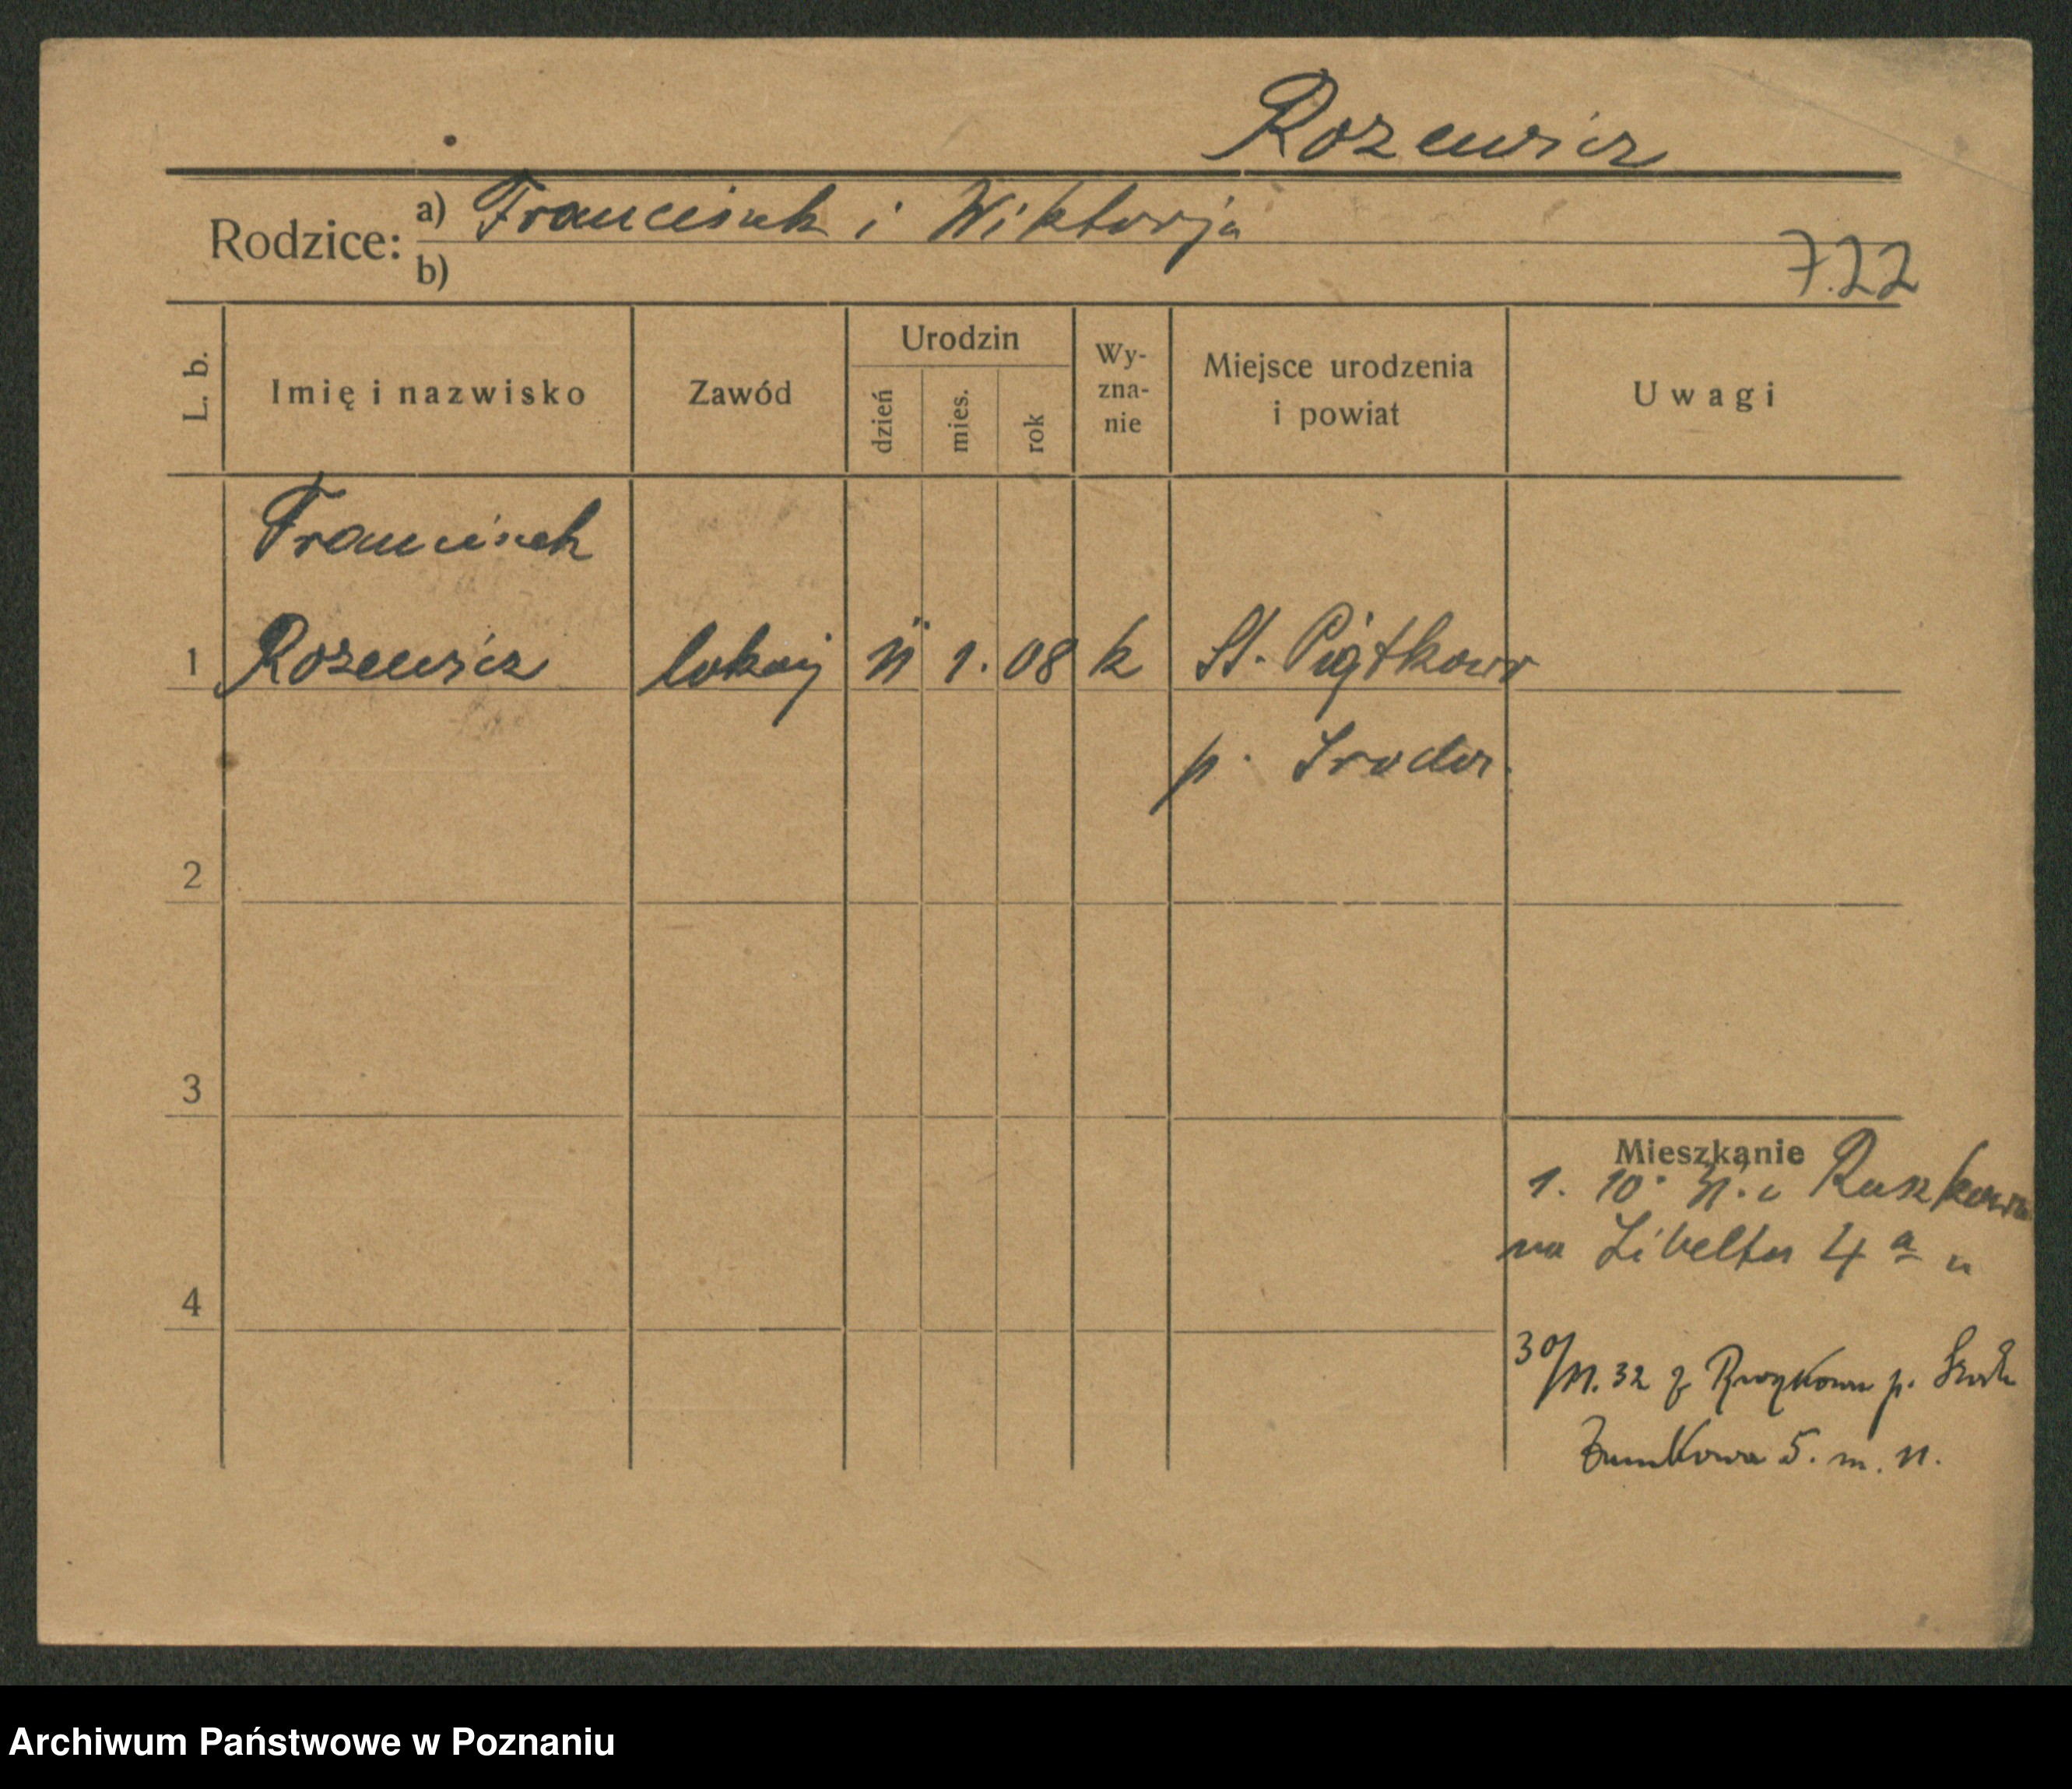 Rozewicz
Rodzice: a) Franciszek i Wiktorja
b)
7.22
L. b.
Imię i nazwisko
Zawód
Urodzin
dzień
mies.
rok
Wy-
zna-
nie
Miejsce urodzenia
i powiat
Uwagi
Franciszek
1 Rozewicz lokaj 11 1. 08 k St. Piątkowo
p. Środa.
2
3
Mieszkanie
1. 10.
na Libelta 4 a
4
30/11. 32 z p. Środa
5. m. 11.
Archiwum Państwowe w Poznaniu